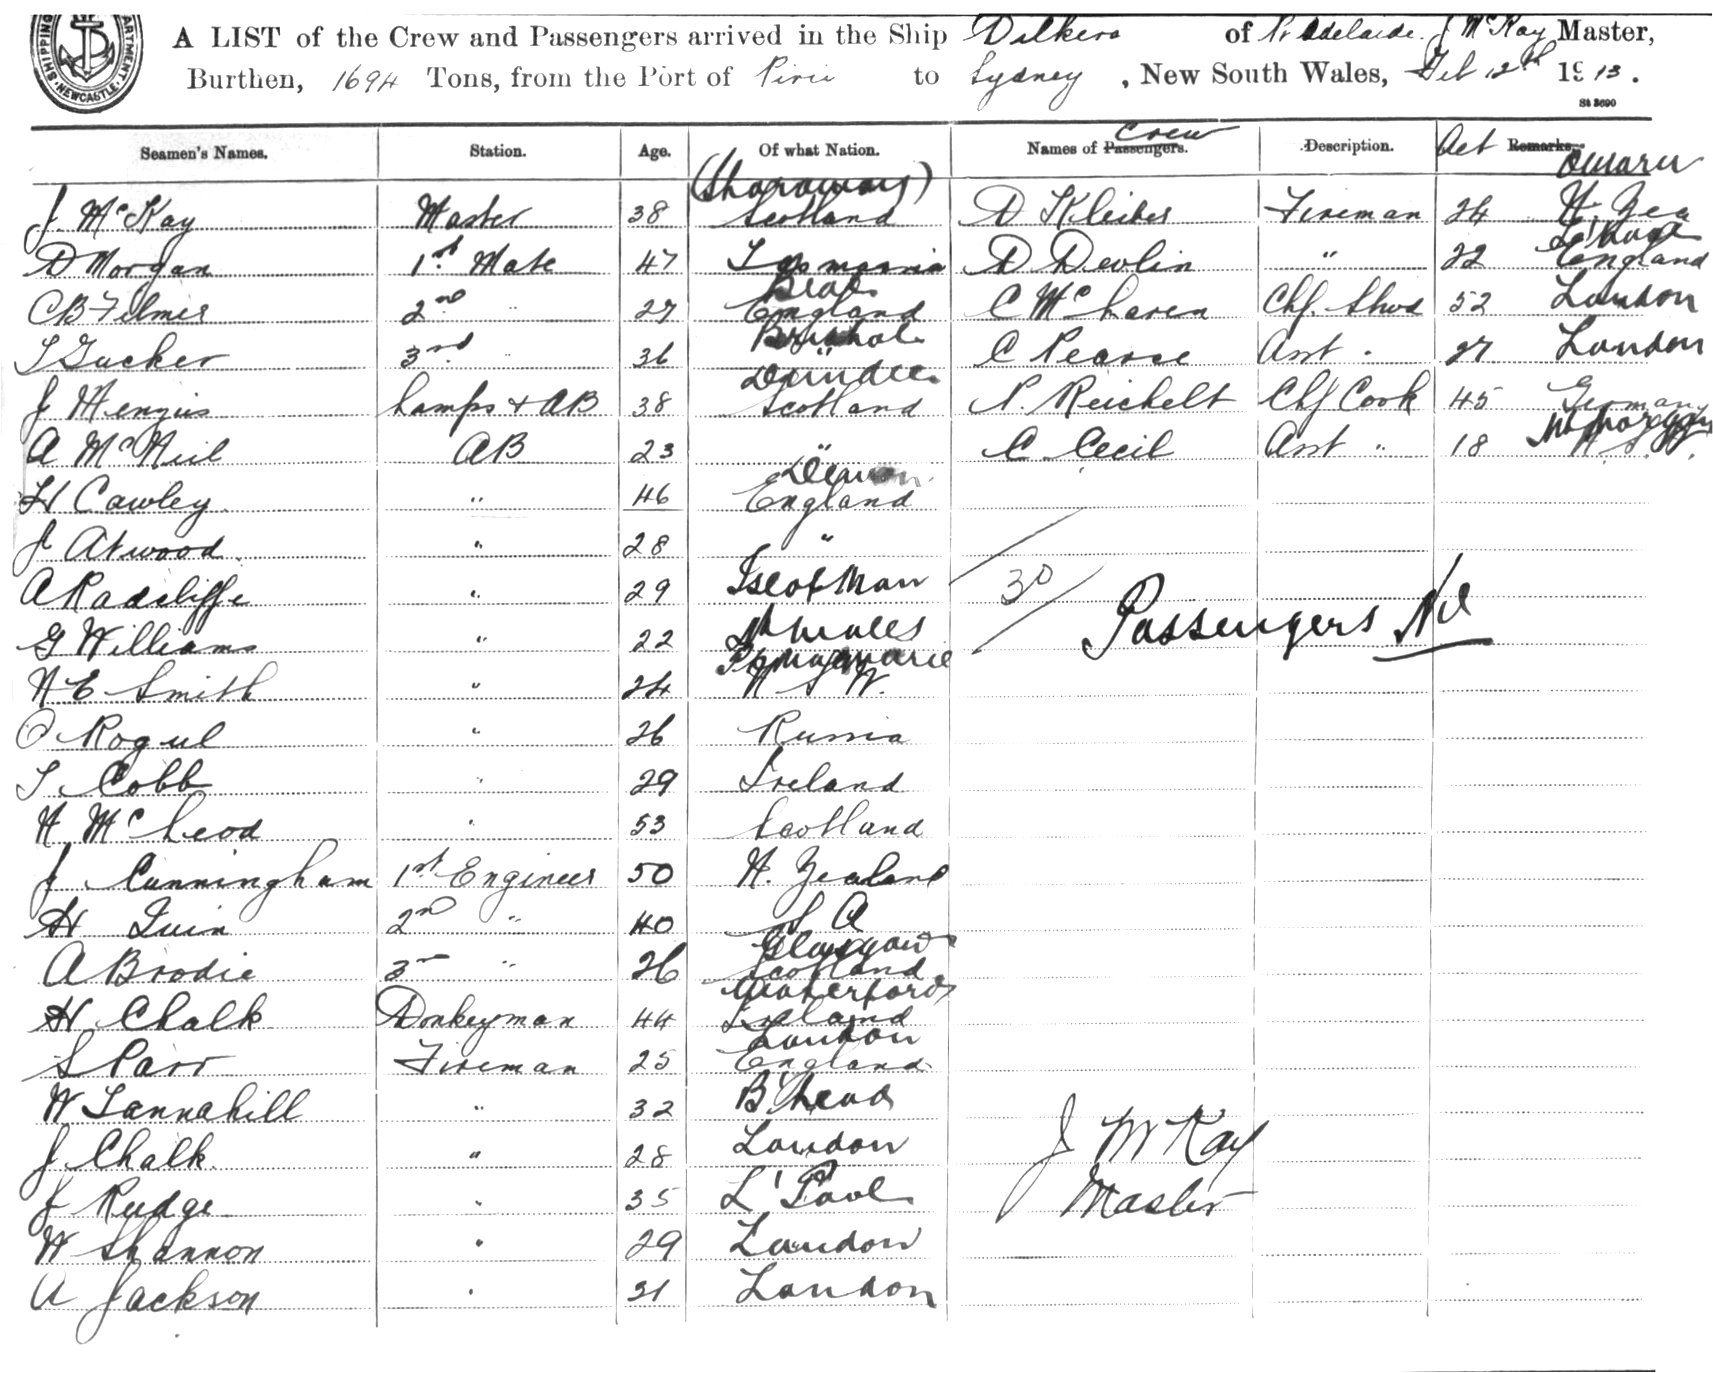 SHIPPING DEPARTMENT NEWCASTLE
A LIST of the Crew and Passengers arrived in the Ship Dilkera of Pt Adelaide J McKay Master,
Burthen, 1694 Tons, from the Port of Pirie to Sydney, New South Wales, Feb 12th 1913.
St 3690
Seamen's Names. Station. Age. Of what Nation. Names of Passengers. Crew Description. Remarks.
J. McKay Master 38 Scotland D Kleiber Fireman 24 Omaru N. Zea
D Morgan 1st Mate 47 Tasmania D Devlin " 22 L'Pool England
C B Filmer 2nd " 27 England C McLaren Chf. Stwd 52 London
3rd " 36 Bristol " C Pearse Asst " 27 London
J Menzies Lamps & AB 38 Dundee Scotland N. Reichelt Chf Cook 45 Germany
A McNeil AB 23 " C Cecil Asst " 18 N.S.W.
H Cawley " 46 Devon England
J Atwood " 28 "
A Radcliffe " 29 Isle of Man
30
G Williams " 22 Nth Wales
Passengers Nil
N E Smith " 24 Pt Macquarie N S W.
O Rogul " 26 Russia
T. Cobb " 29 Ireland
N McLeod " 53 Scotland
J Cunningham 1st Engineer 50 N. Zealand
H 2nd " 40 S A
A Brodie 3rd " 26 Glasgow Scotland
H Chalk Donkeyman 44 Waterford Ireland
S Parr Fireman 25 London England
W Tannahill " 32 B'head
J Chalk " 28 London
J McKay
J Rudge " 35 L'Pool
Master
W Shannon " 29 London
A Jackson " 31 London